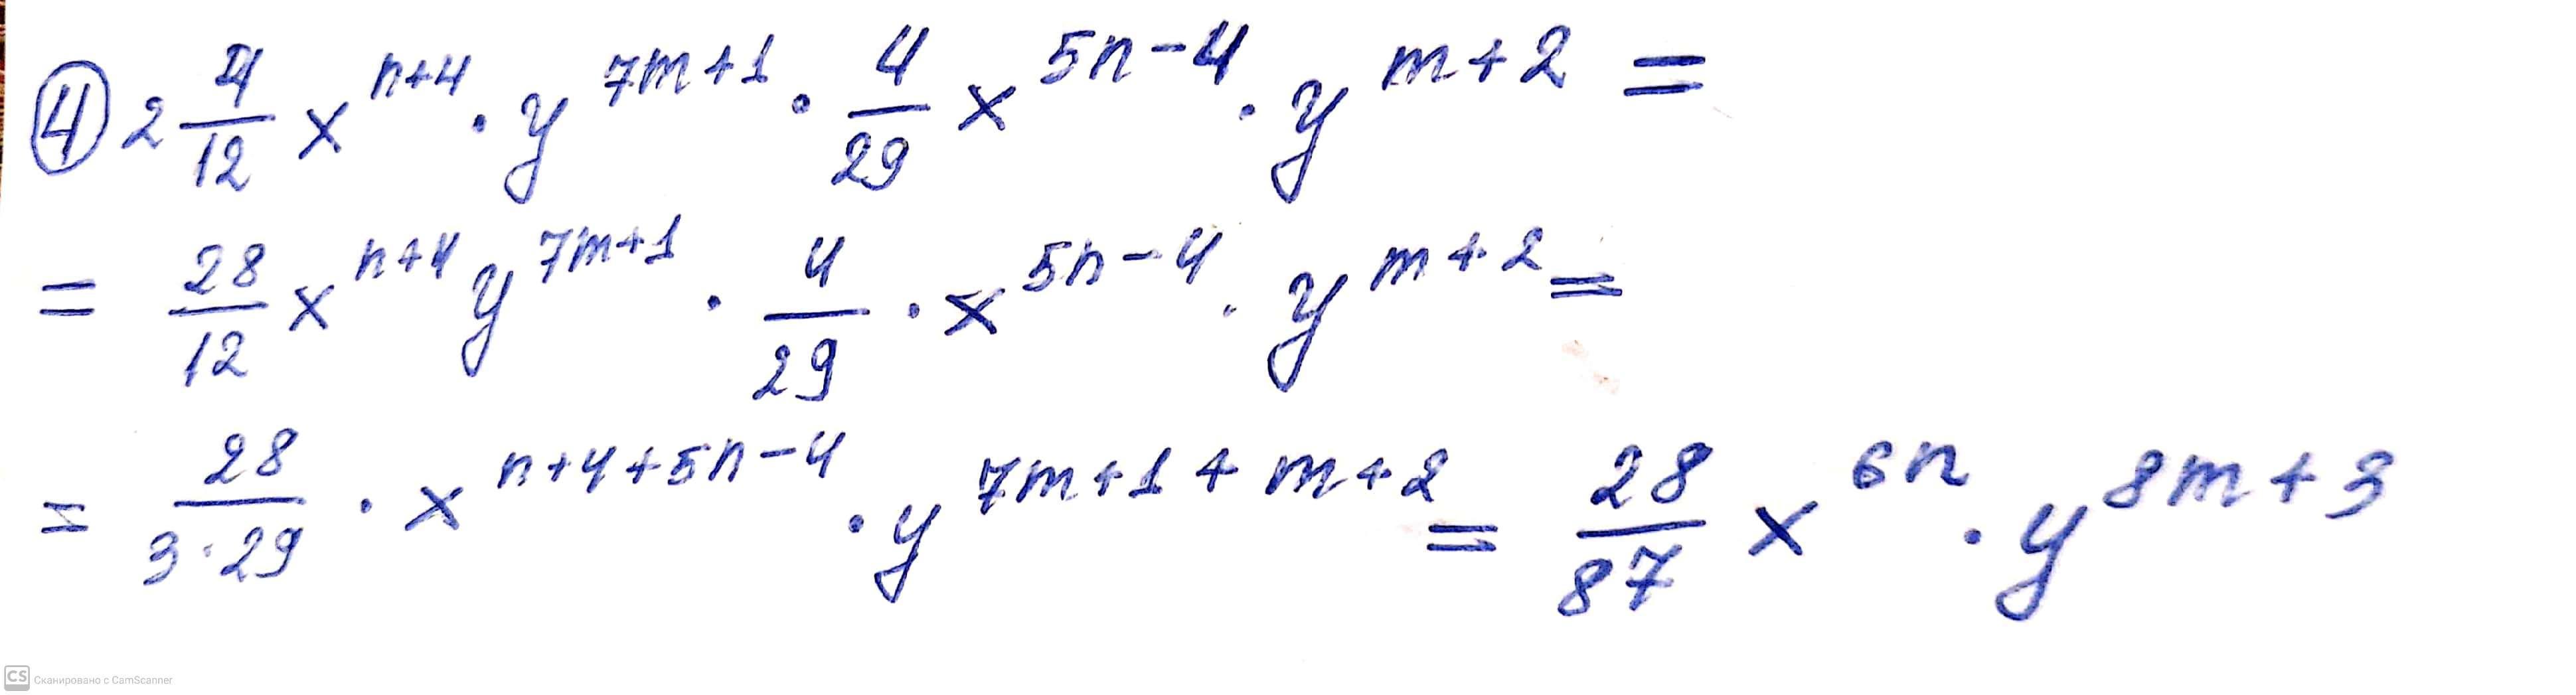 ④ 2 4/12 x^(n+4) · y^(7m+1) · 4/29 x^(5n-4) · y^(m+2) =
= 28/12 x^(n+4) y^(7m+1) · 4/29 · x^(5n-4) · y^(m+2) =
= 28/(3·29) · x^(n+4+5n-4) · y^(7m+1+m+2) = 28/87 x^(6n) · y^(8m+3)
CS Сканировано с CamScanner